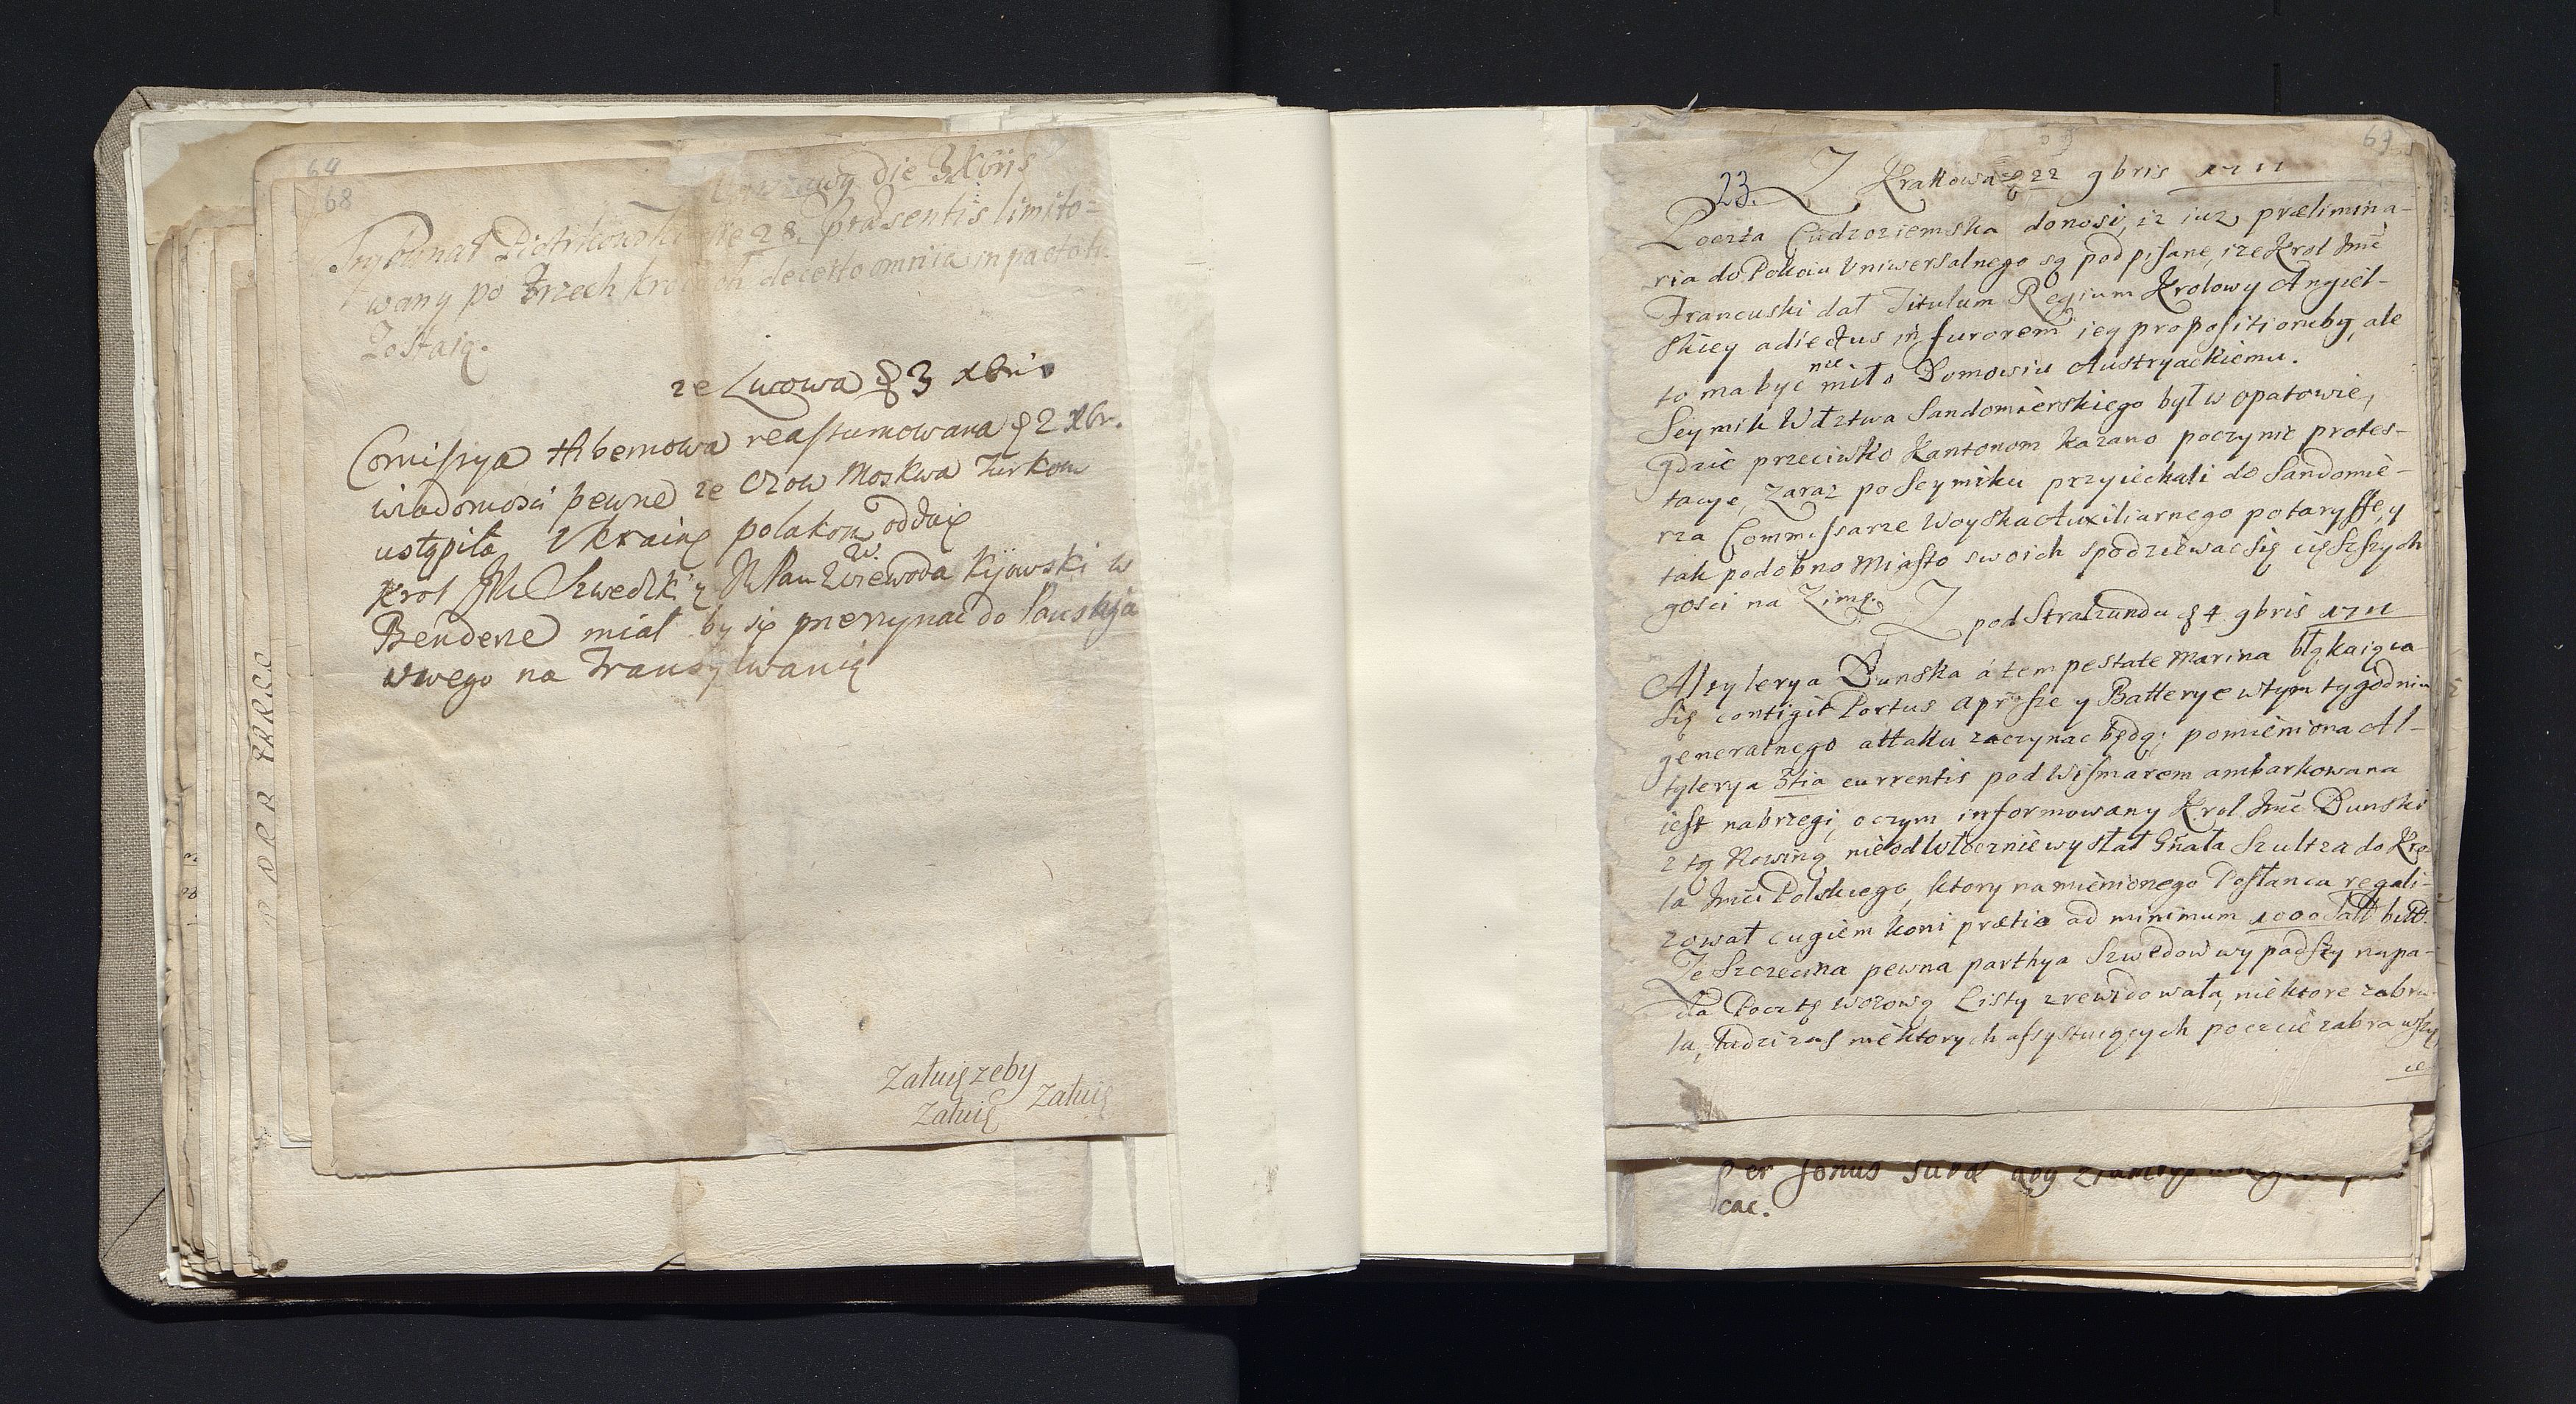 64
68
Warszawy die 3 Xbris
Trybunał Piotrkowski die 28. præsentis limito=
wany po trzech krolach de cetero omnia in pacatoh
Zostaią.
ze Lwowa d 3 xbris
Comissya Hibernowa reassumowana d 2 Xbr.
wiadomosci pewne ze Ozow Moskwa Turkom
ustąpiła, Vkrainę polakom oddaię
Krol JM Szwedzki y JM Pan Woiewoda kijowski w
Benderze miał by się przerzynac do Panstwa
swego na Transylwanią
Załuię zeby
Załuię Załuię
69
23. Z Krakowa d 22 9bris 1711
Poczta Cudzoziemska donosi, iz iuz prælimina-
ria do Pokoiu Vniwersalnego są podpisane, i ze Krol Jmć
Francuski dał Titulum Regium Krolowy Angiel-
skiey adiectus in furorem iey propositionibq, ale
to ma byc nie miło Domowiu Austryackiemu.
Seymik Wdztwa Sandomierskiego był w Opatowie,
gdzie przeciwko Kantonom kazano poczynic protes-
tacye, zaraz po Seymiku przyiechali do Sandomie-
rza Commissarze Woyska Auxiliarnego po taryffe, y
tak podobno Miasto swoich spodziewac się cięższych
gosci na Zimę.
Z pod Stralzundu d 4 9bris 1711
Altylerya Dunska á tempestate Marina błąkaiąca
się contigit Portus aprosze y Batterye w tym tygodniu
generalnego attaku zaczynac będą; pomieniona Al-
tylerya 3tia currentis pod Wismarem ambarkowana
iest na brzegi, o czym informowany Krol Jmć Dunski
z tą Nowiną nieodwłocznie wysłał Gnała Szultza do Kro-
la Jmći Polskiego, ktory namienionego Posłanca regali-
zował cugiem koni prætio ad minimum 1000 Tall: bitt.
Ze Szczecina pewna parthya Szwedow wypadszy napa-
dła Pocztę wozową Listy zrewidowała, niektore zabra-
ła, tudziesz niektorych assystuiących poczcie zabrawszy
ie
per sonus suræ
cac.